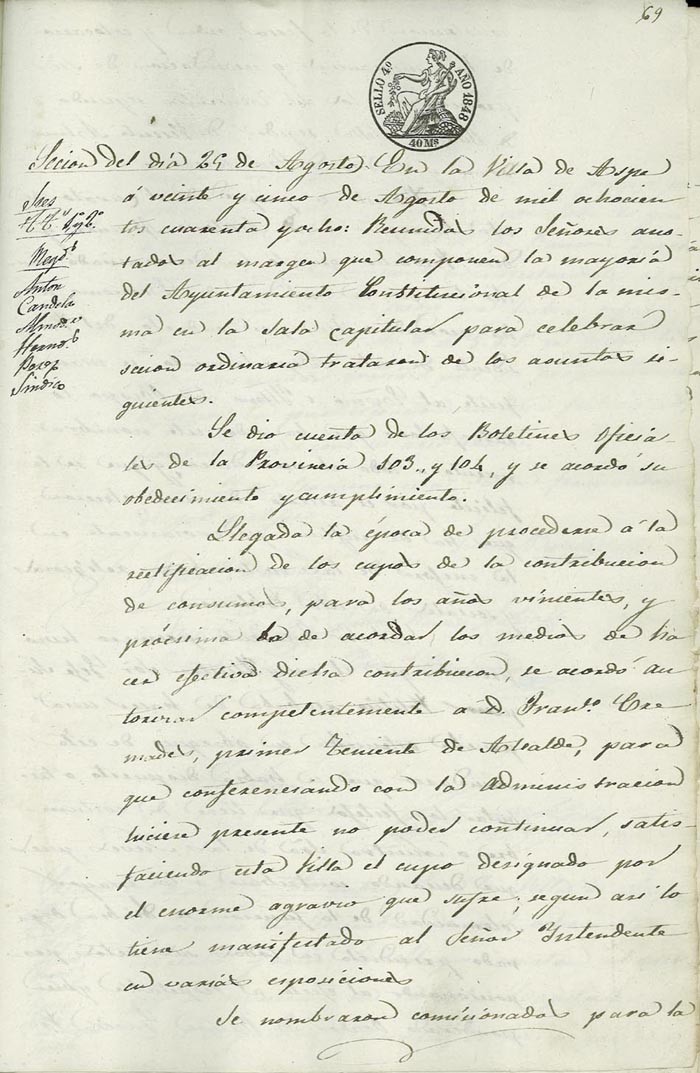 69
SELLO 4º AÑO 1848
40 Mˢ
Secion del dia 25 de Agosto. En la Villa de Aspe
á veinte y cinco de Agosto de mil ochocien
tos cuarenta y ocho: Reunidos los Señores ano-
tados al margen que componen la mayoría
del Ayuntamiento Constitucional de la mis-
ma en la sala capitular para celebrar
secion ordinaria trataron de los asuntos si-
guientes.
Sres
TTˢ 1º y 2º
Anton
Candela
Almodᵒ
Hernᶻ
Sindico
Se dio cuenta de los Boletines Oficia-
les de la Provincia 103., y 104, y se acordó su
obedecimiento y cumplimiento.
Llegada la época de procederse á la
rectificacion de los cupos de la contribucion
de consumos, para los años vinientes, y
procsima la de acordar los medios de ha
cer efectiva dicha contribucion, se acordó au
torizar competentemente a D. Franᶜᵒ Cre
mades, primer Teniente de Alcalde, para
que conferenciando con la Administracion
hiciere presente no poder continuar, satis-
faciendo esta Villa el cupo designado por
el enorme agravio que sufre, segun asi lo
tiene manifestado al Señor Intendente
en varias esposiciones
Se nombraron comicionados para la